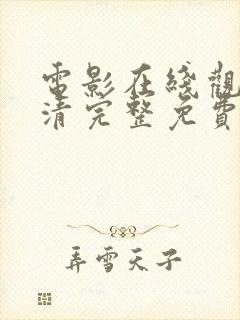 電影在綫觀
清完整免費
弄雪天子